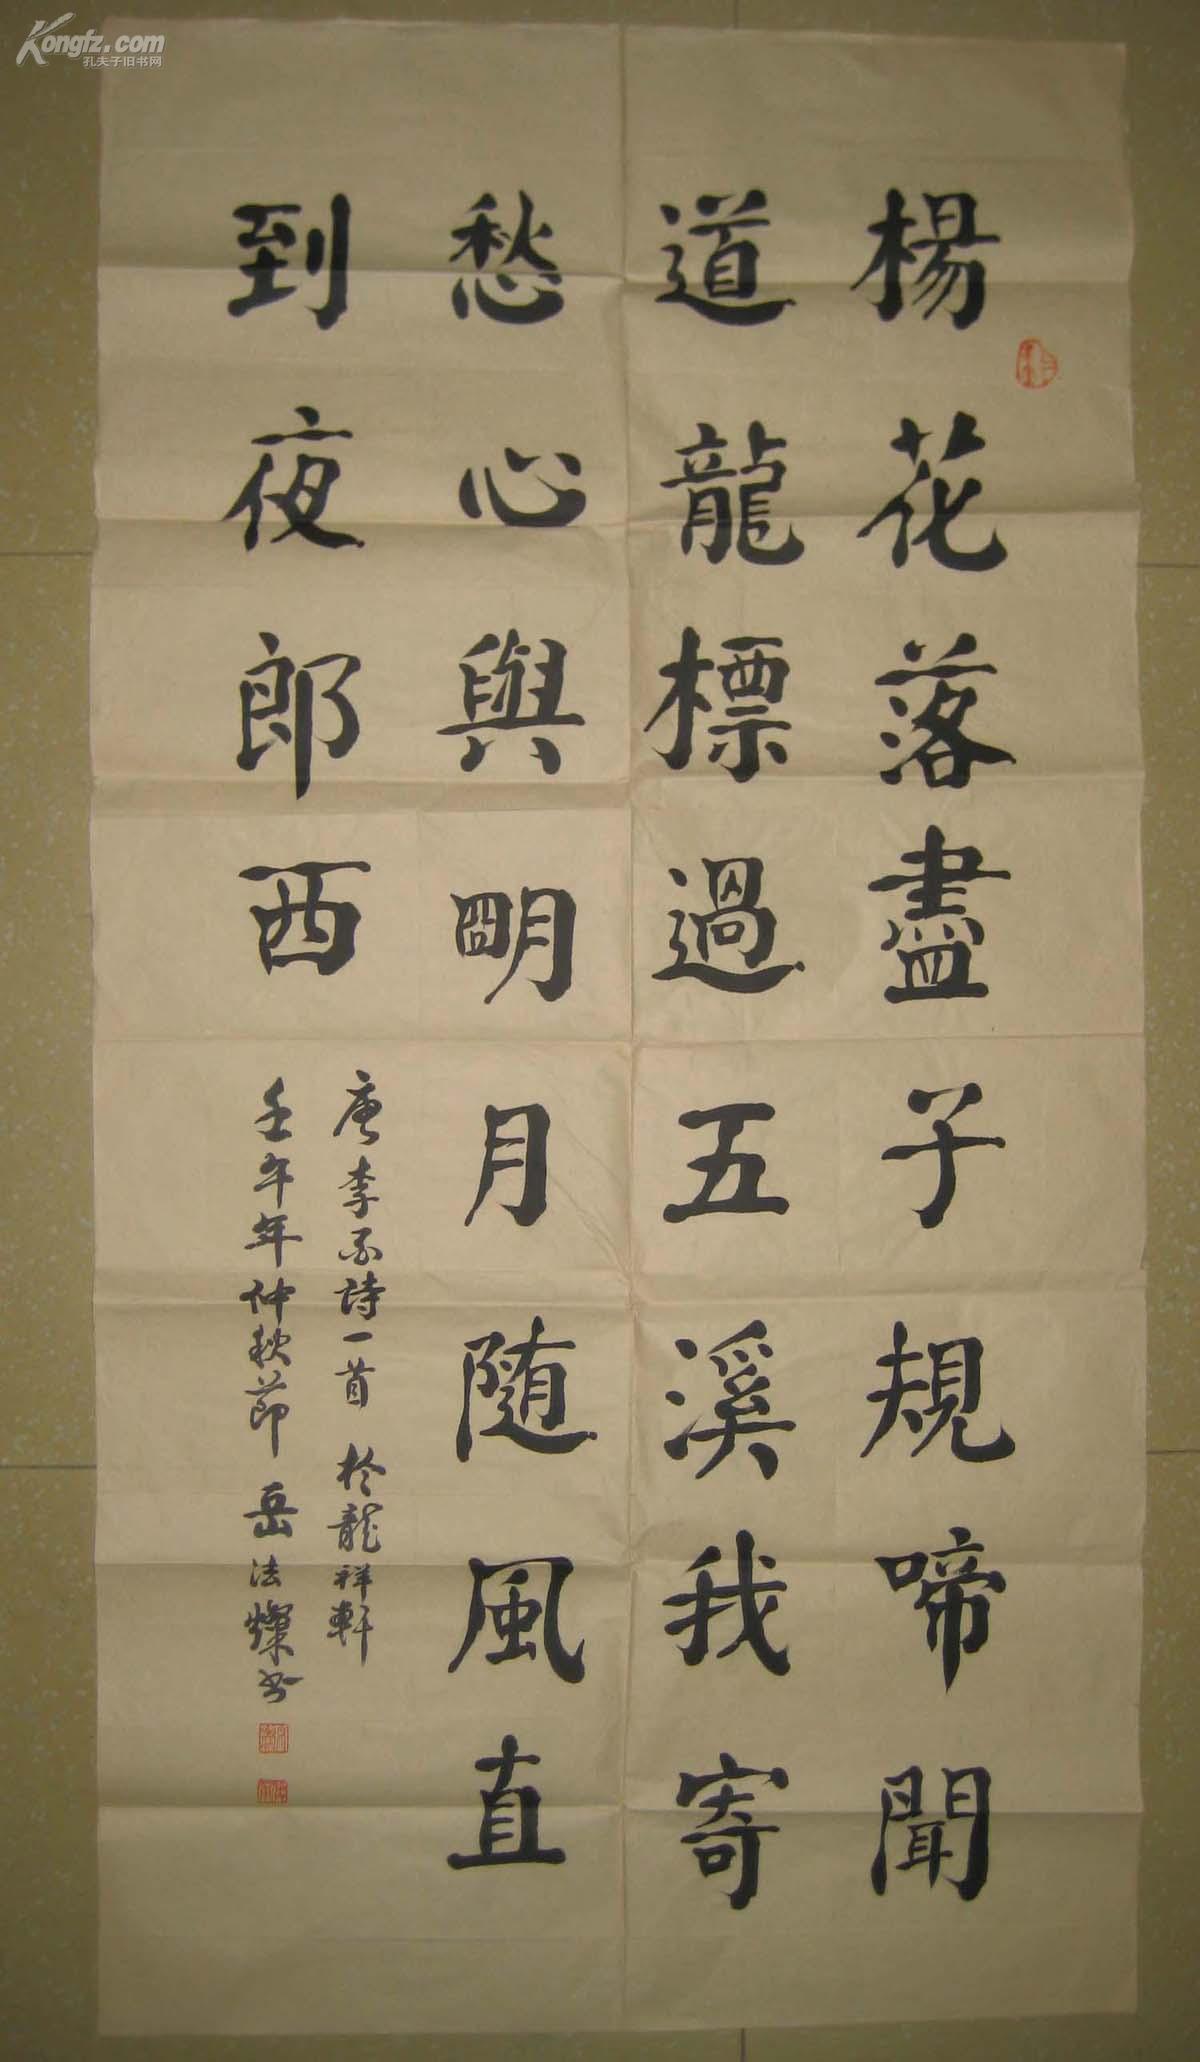 Kongfz.com
孔夫子旧书网
楊花落盡子規啼聞
道龍標過五溪我寄
愁心與明月随風直
到夜郎西
唐李白詩一首 於龍祥軒
壬午年仲秋節 岳法燦书